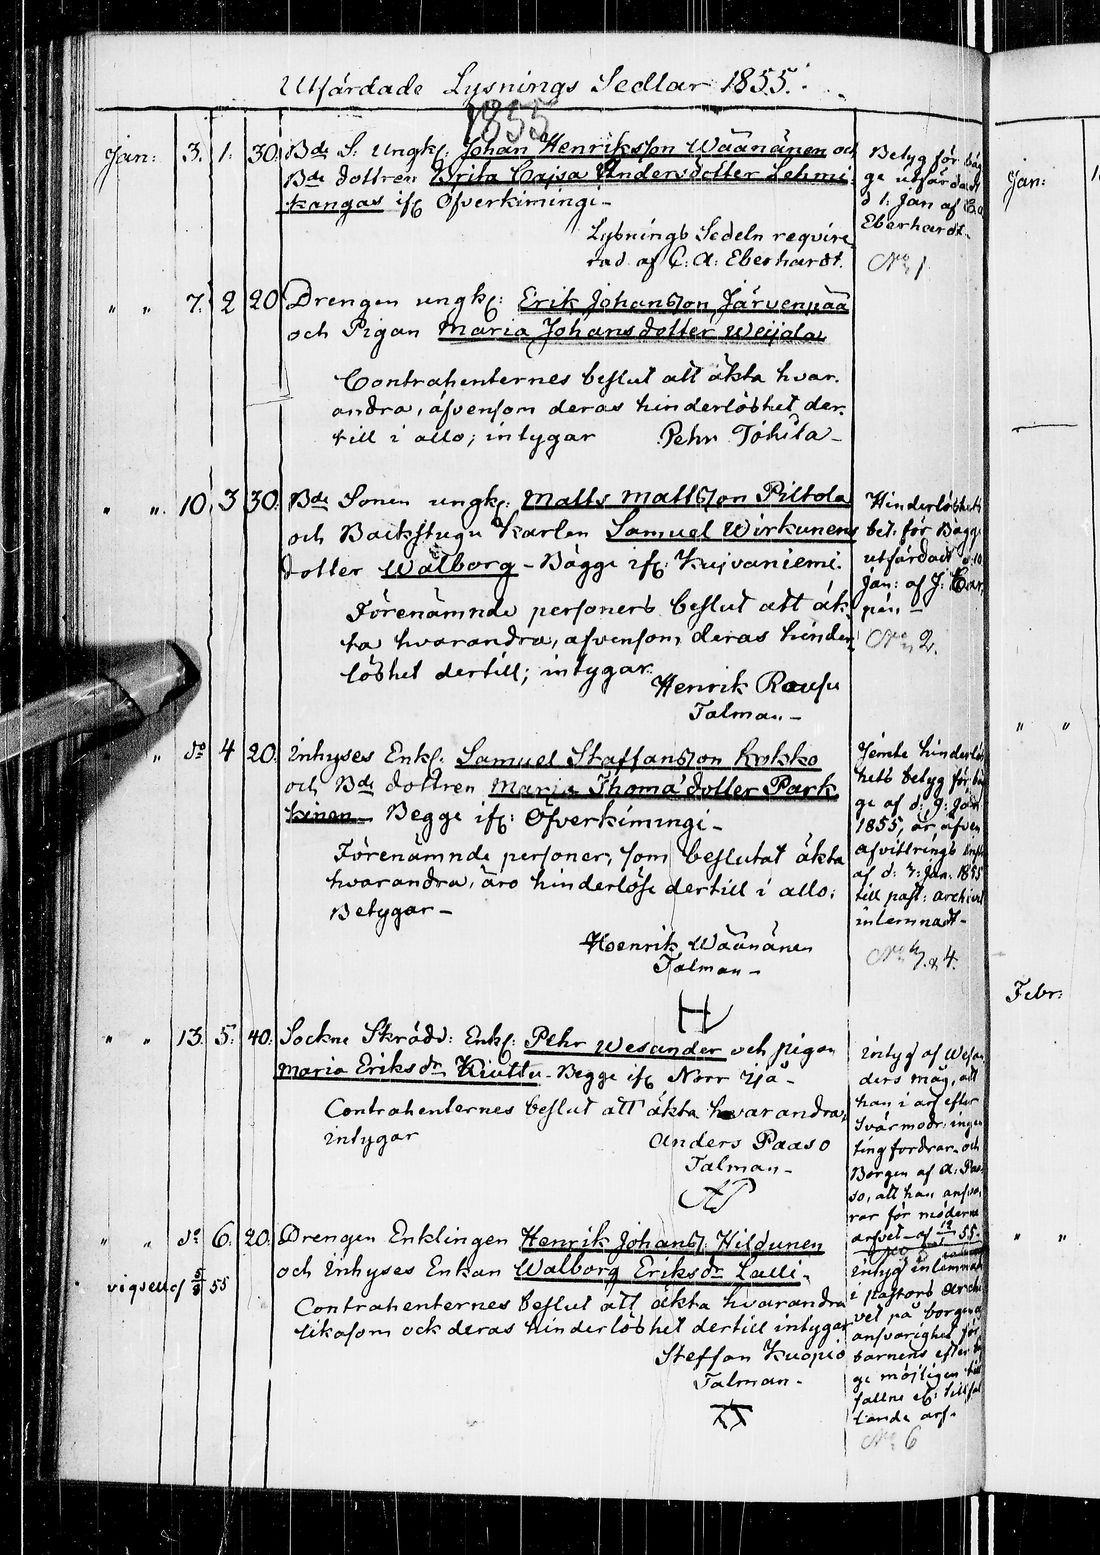 Utfärdade Lysnings Sedlar 1855.
1855
Jan: 3. 1. 30. Bde S: Ungk: Johan Henriksson Wäänänen och
Bde dottren Brita Cajsa Andersdotter Lehmi-
kangas if: Öfverkiminge-
Lysnings Sedeln require-
rad af C: A: Eberhardt.
Betyg för båg
ge utfärdadt
d 1: Jan af C: A
Eberhardt-
No 1
" " 7. 2 20 Drengen ungk: Erik Johansson Järvenpää
och Pigan Maria Johansdotter Weijola
Contrahenternes beslut att äkta hvar-
andra, äfvensom deras hinderlöshet der-
till i allo; intygar Pehr Tohila-
" " 10 3 30. Bde Sonen ungk: Matts Mattsson Piltola
och Backstugu Karlen Samuel Wirkunens
dotter Walborg - Bägge if: Kuivaniemi.
Förenämnde personers beslut att äk-
ta hvarandra, äfvensom deras hinder-
löshet dertill; intygar.
Henrik Rausu
Talman-
Hinderlöshets
bet: för Bägge
utfärdadt d 10
Jan: af J: Car
pén-
No 2.
" do 4 20. Inhyses Enkl. Samuel Staffansson Kokko
och Bde dottren Maria Thoma dotter Park
kinen - Begge if: Öfverkiminge-
Förenämnde personer, som beslutat äkta
hvarandra, äro hinderlöse dertill i allo;
Betygar-
Henrik Wäänänen
Talman-
Jemte hinderlös
hets betyg för bäg
ge af d: 9: Jan
1855, är äfven
afvittrings
af d: 7: Jan. 1855
till past: archivet
inlemnadt-
No 4.
H
" " 13. 5. 40. Sockne Skrädd: Enkl: Pehr Wesander och pigan
Maria Eriksdr Kiuttu - Begge if: Norr Ijå-
Contrahenternes beslut att äkta hvarandra,
intygar Anders Paaso
Talman-
AP
Intyg af Wesan
ders måg, att
han i arf efter
Svärmodr: ingen
ting fordrar och
Borgen af A: Paa
so, att han ansva
rar för möderne
arfvet - af 55.
" " do 6. 20. Drengen Enklingen Henrik Johans. Hildunen
och Inhyses Enkan Walborg Eriksdr Lalli-
vigsell 55
Contrahenternes beslut att äkta hvarandra
likasom ock deras hinderlöshet dertill intygar
Steffan Kuopio
Talman-
Intyg inlemnadt
i pastors Archi
vet på borgen o
ansvarighet för
barnens efter
ge möjligen till
fallne el: tillfal
lande arf.
No 6
Jan:
" "
Febr:
" "